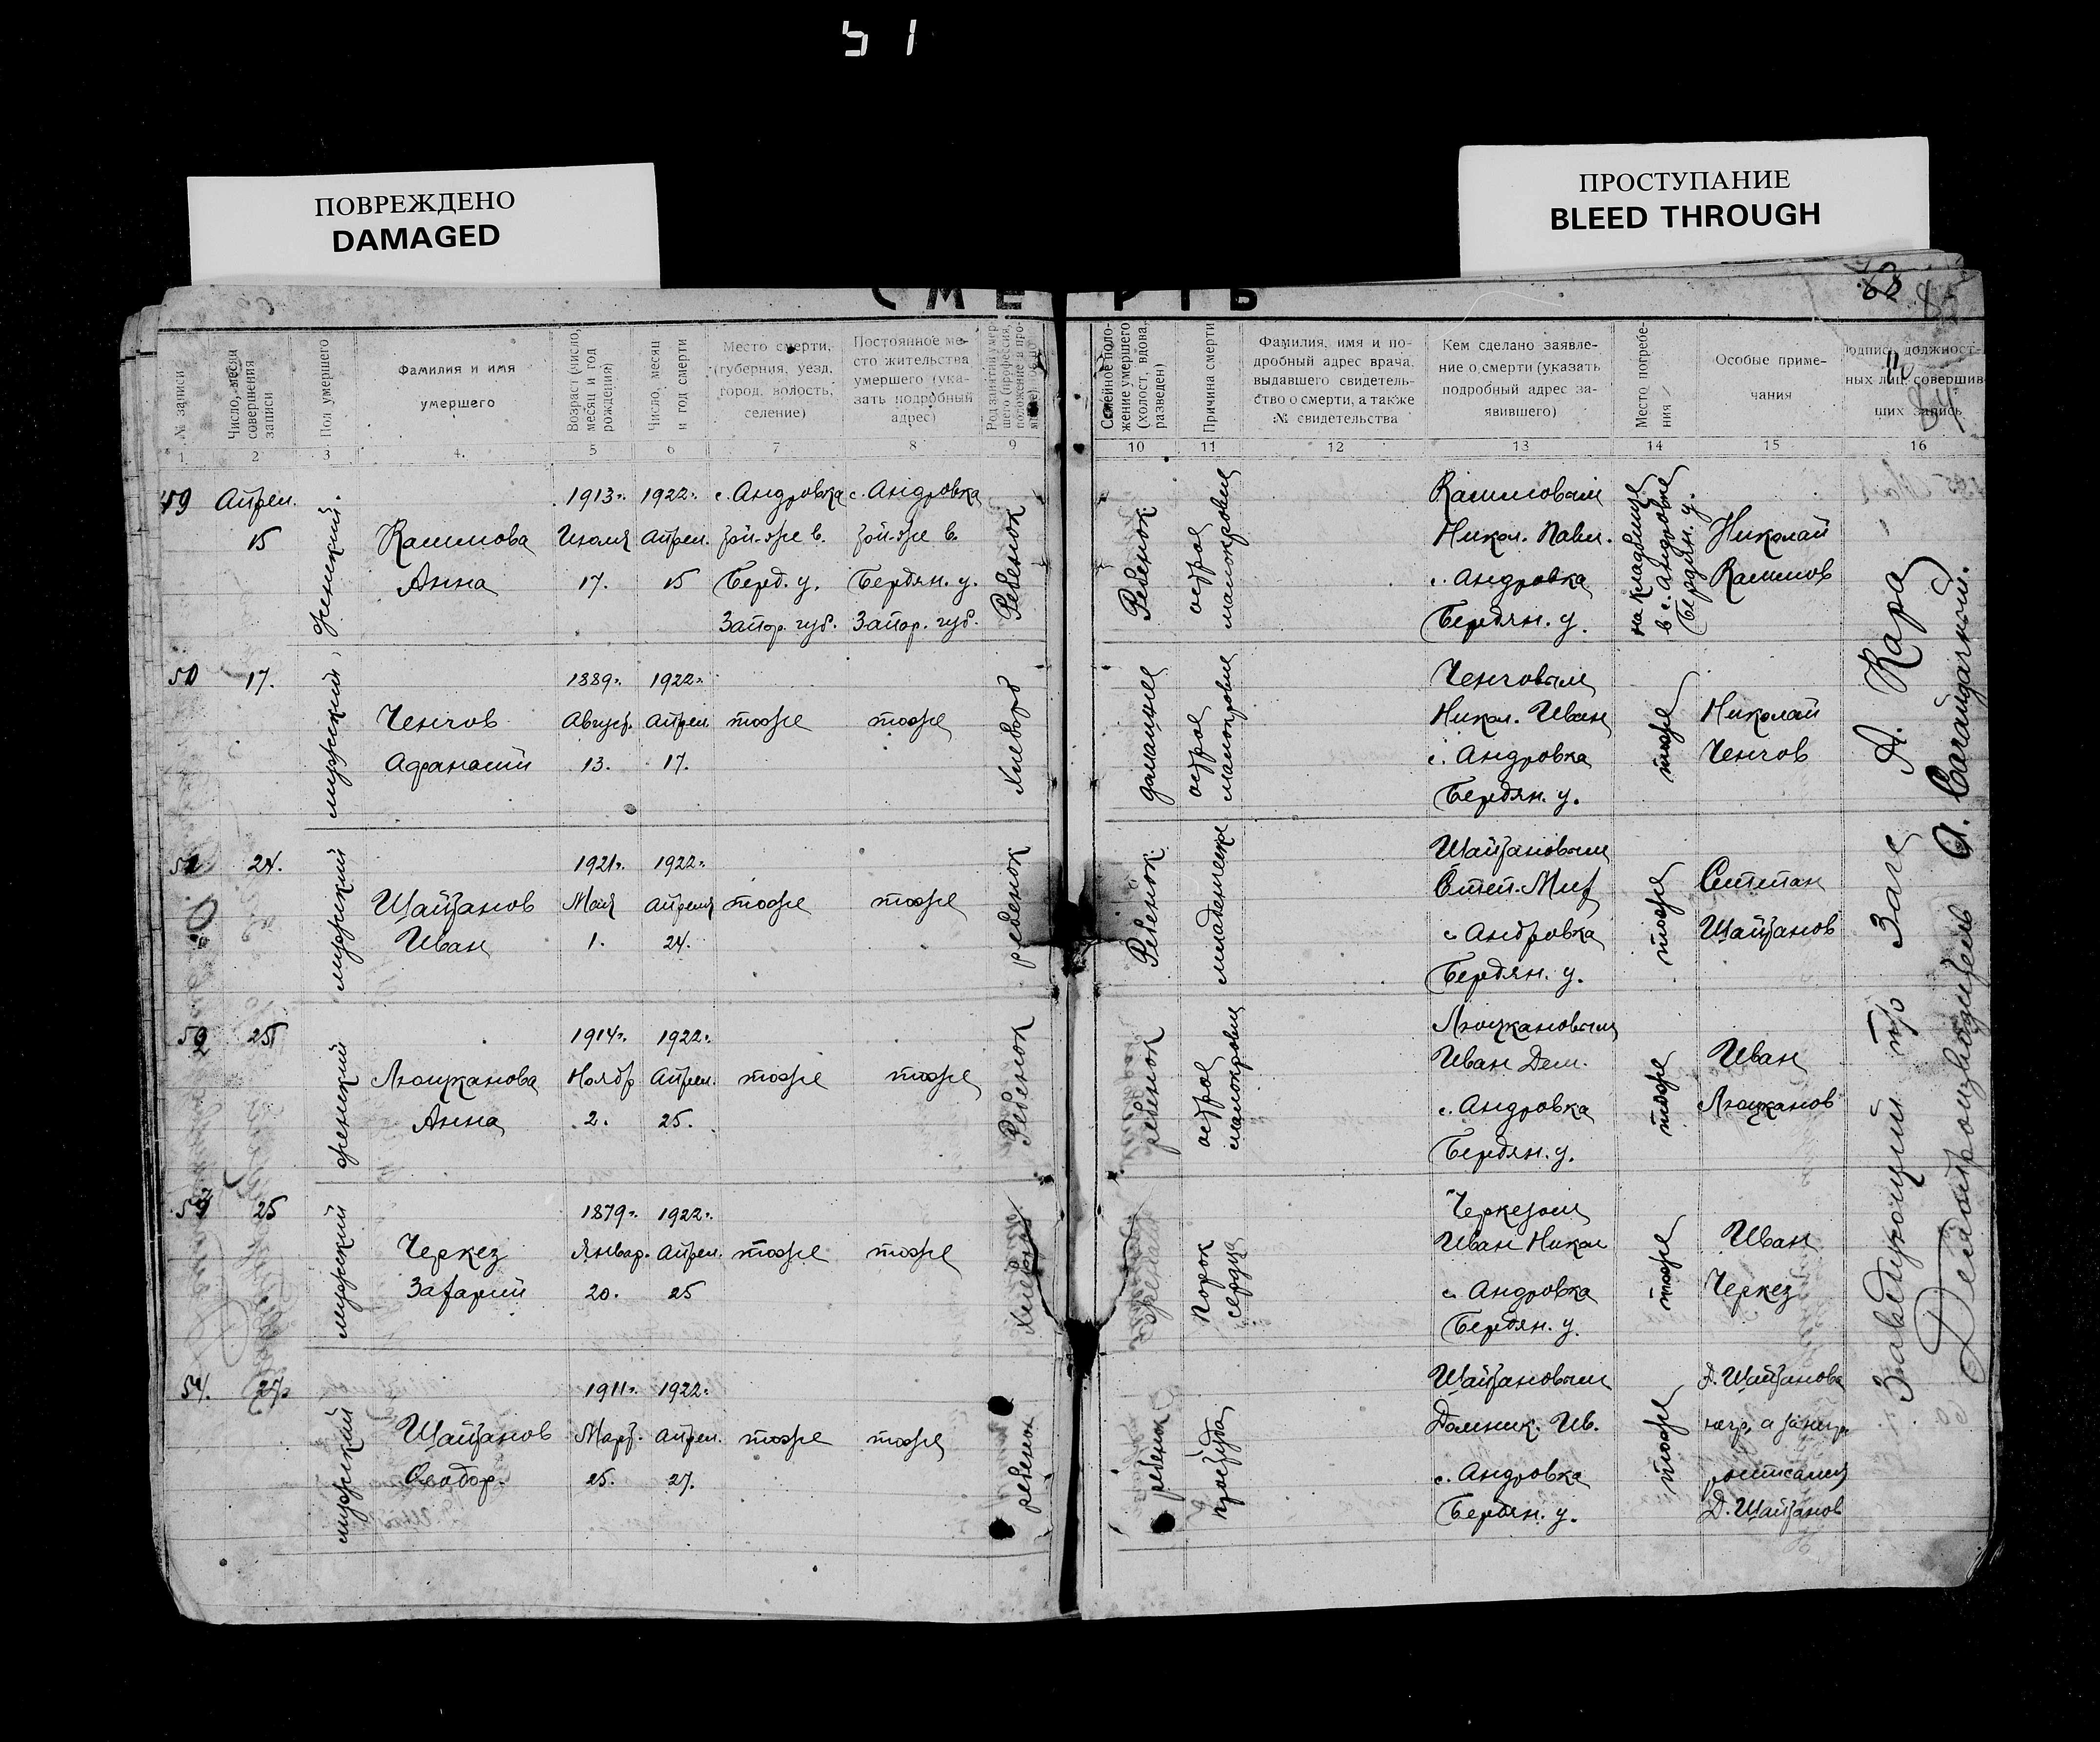 51
ПОВРЕЖДЕНО
DAMAGED
ПРОСТУПАНИЕ
BLEED THROUGH
СМЕРТЬ
№ записи
Число, месяц совершения записи
Пол умершего
Фамилия и имя
умершего
Возраст (число, месяц и год рождения)
Число, месяц и год смерти
Место смерти,
(губерния, уезд,
город, волость,
селение)
Постоянное ме-
сто жительства
умершего (ука-
зать подробный
адрес)
Семейное поло-
жение умершего
(холост, вдова,
разведен)
Причина смерти
Фамилия, имя и по-
дробный адрес врача,
выдавшего свидетель-
ство о смерти, а также
№ свидетельства
Кем сделано заявле-
ние о смерти (указать
подробный адрес за-
явившего)
Место погребе-
ния
Особые приме-
чания
Подпись должност-
ных лиц совершив-
ших запись
1 2 3 4. 5 6 7 8 9 10 11 12 13 14 15 16
49 Апрел. 15
женский
Кашнова
Анна
1913г.
Июля
17.
1922г.
Апрел.
15
с. Андровка
Берд. у.
Запор. губ.
с. Андровка
Бердян. у.
Запор. губ.
Ребенок
Ребенок
острое
малокровие
Николай
с. Андровка
Бердян. у.
на кладбище
в с. Андровке
Бердян. у.
50 17.
мужский
Ченчов
Афанасий
1889г.
Август.
13.
1922г.
Апрел.
17.
тоже
тоже
Хлебороб
домашнее
острое
малокровие
Ченчовым
Никол. Иван
с. Андровка
Бердян. у.
тоже
Николай
Ченчов
51 24.
мужский
Шайтанов
Иван
1921г.
Мая
1.
1922г.
Апреля
24.
тоже
тоже
ребенок
Ребенок
младенческое
Шайтановым
с. Андровка
Бердян. у.
тоже
Степан
Шайтанов
52 25
женский
Анна
1914г.
Ноябр
2.
1922г.
Апрел.
25.
тоже
тоже
Ребенок
ребенок
острое
малокровие
Иван Дем.
с. Андровка
Бердян. у.
тоже
Иван
53 25
мужский
Черкез
Захарий
1879г.
Январ.
20.
1922г.
Апрел.
25
тоже
тоже
Порок
сердца
Черкезом
Иван Никол
с. Андровка
Бердян. у.
тоже
Иван
Черкез
54. 27.
мужский
Шайтанов
Феодор.
1911г.
Март.
25.
1922г.
Апрел.
27.
тоже
тоже
ребенок
ребенок
простуда
Шайтановым
Домник. Ив.
с. Андровка
Бердян. у.
тоже
Д. Шайтанова
негр, а за негр.
росписался
Д. Шайтанов
Заведующий п/о Загс А. Кара
Делопроизводитель